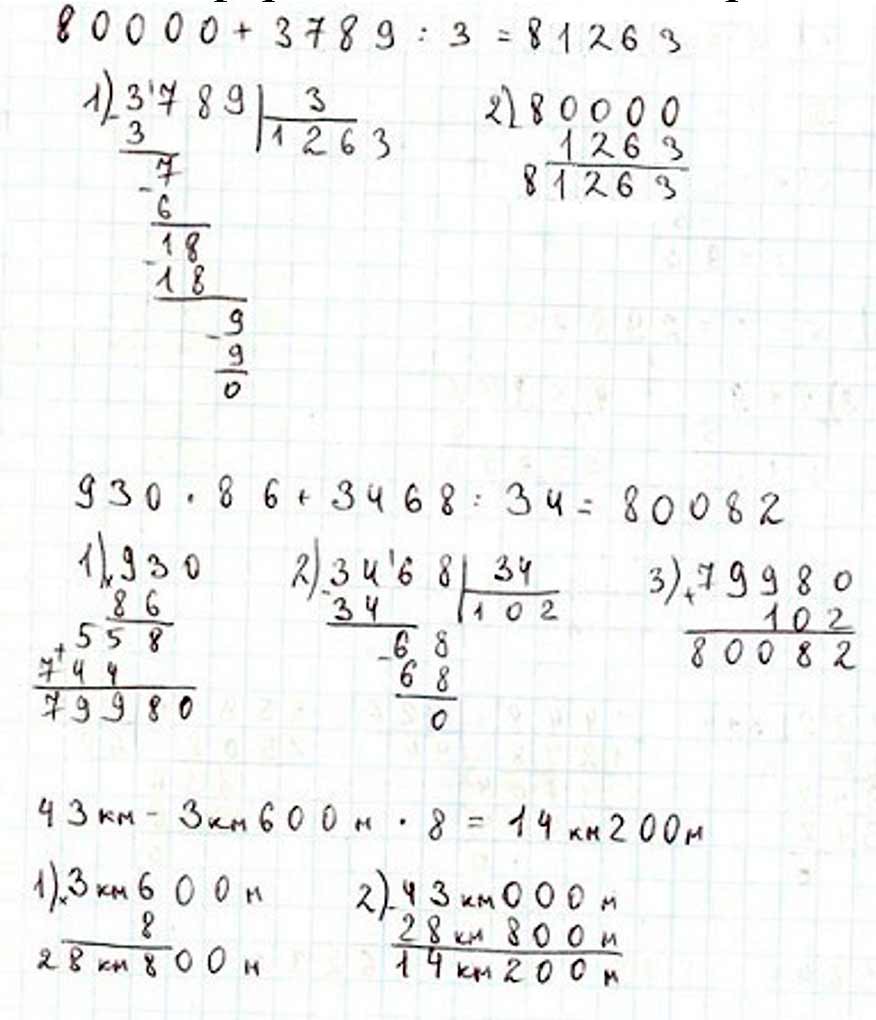 80000 + 3789 : 3 = 81263
1) 3'789 | 3
3 1263
- 7
6
- 18
18
- 9
9
0
2) 80000
1263
81263
930 · 86 + 3468 : 34 = 80082
1) × 930
86
+ 558
744
79980
2) - 34'68 | 34
34 102
- 68
68
0
3) + 79980
102
80082
43 км - 3 км 600 м · 8 = 14 км 200 м
1) × 3 км 600 м
8
28 км 800 м
2) - 43 км 000 м
28 км 800 м
14 км 200 м